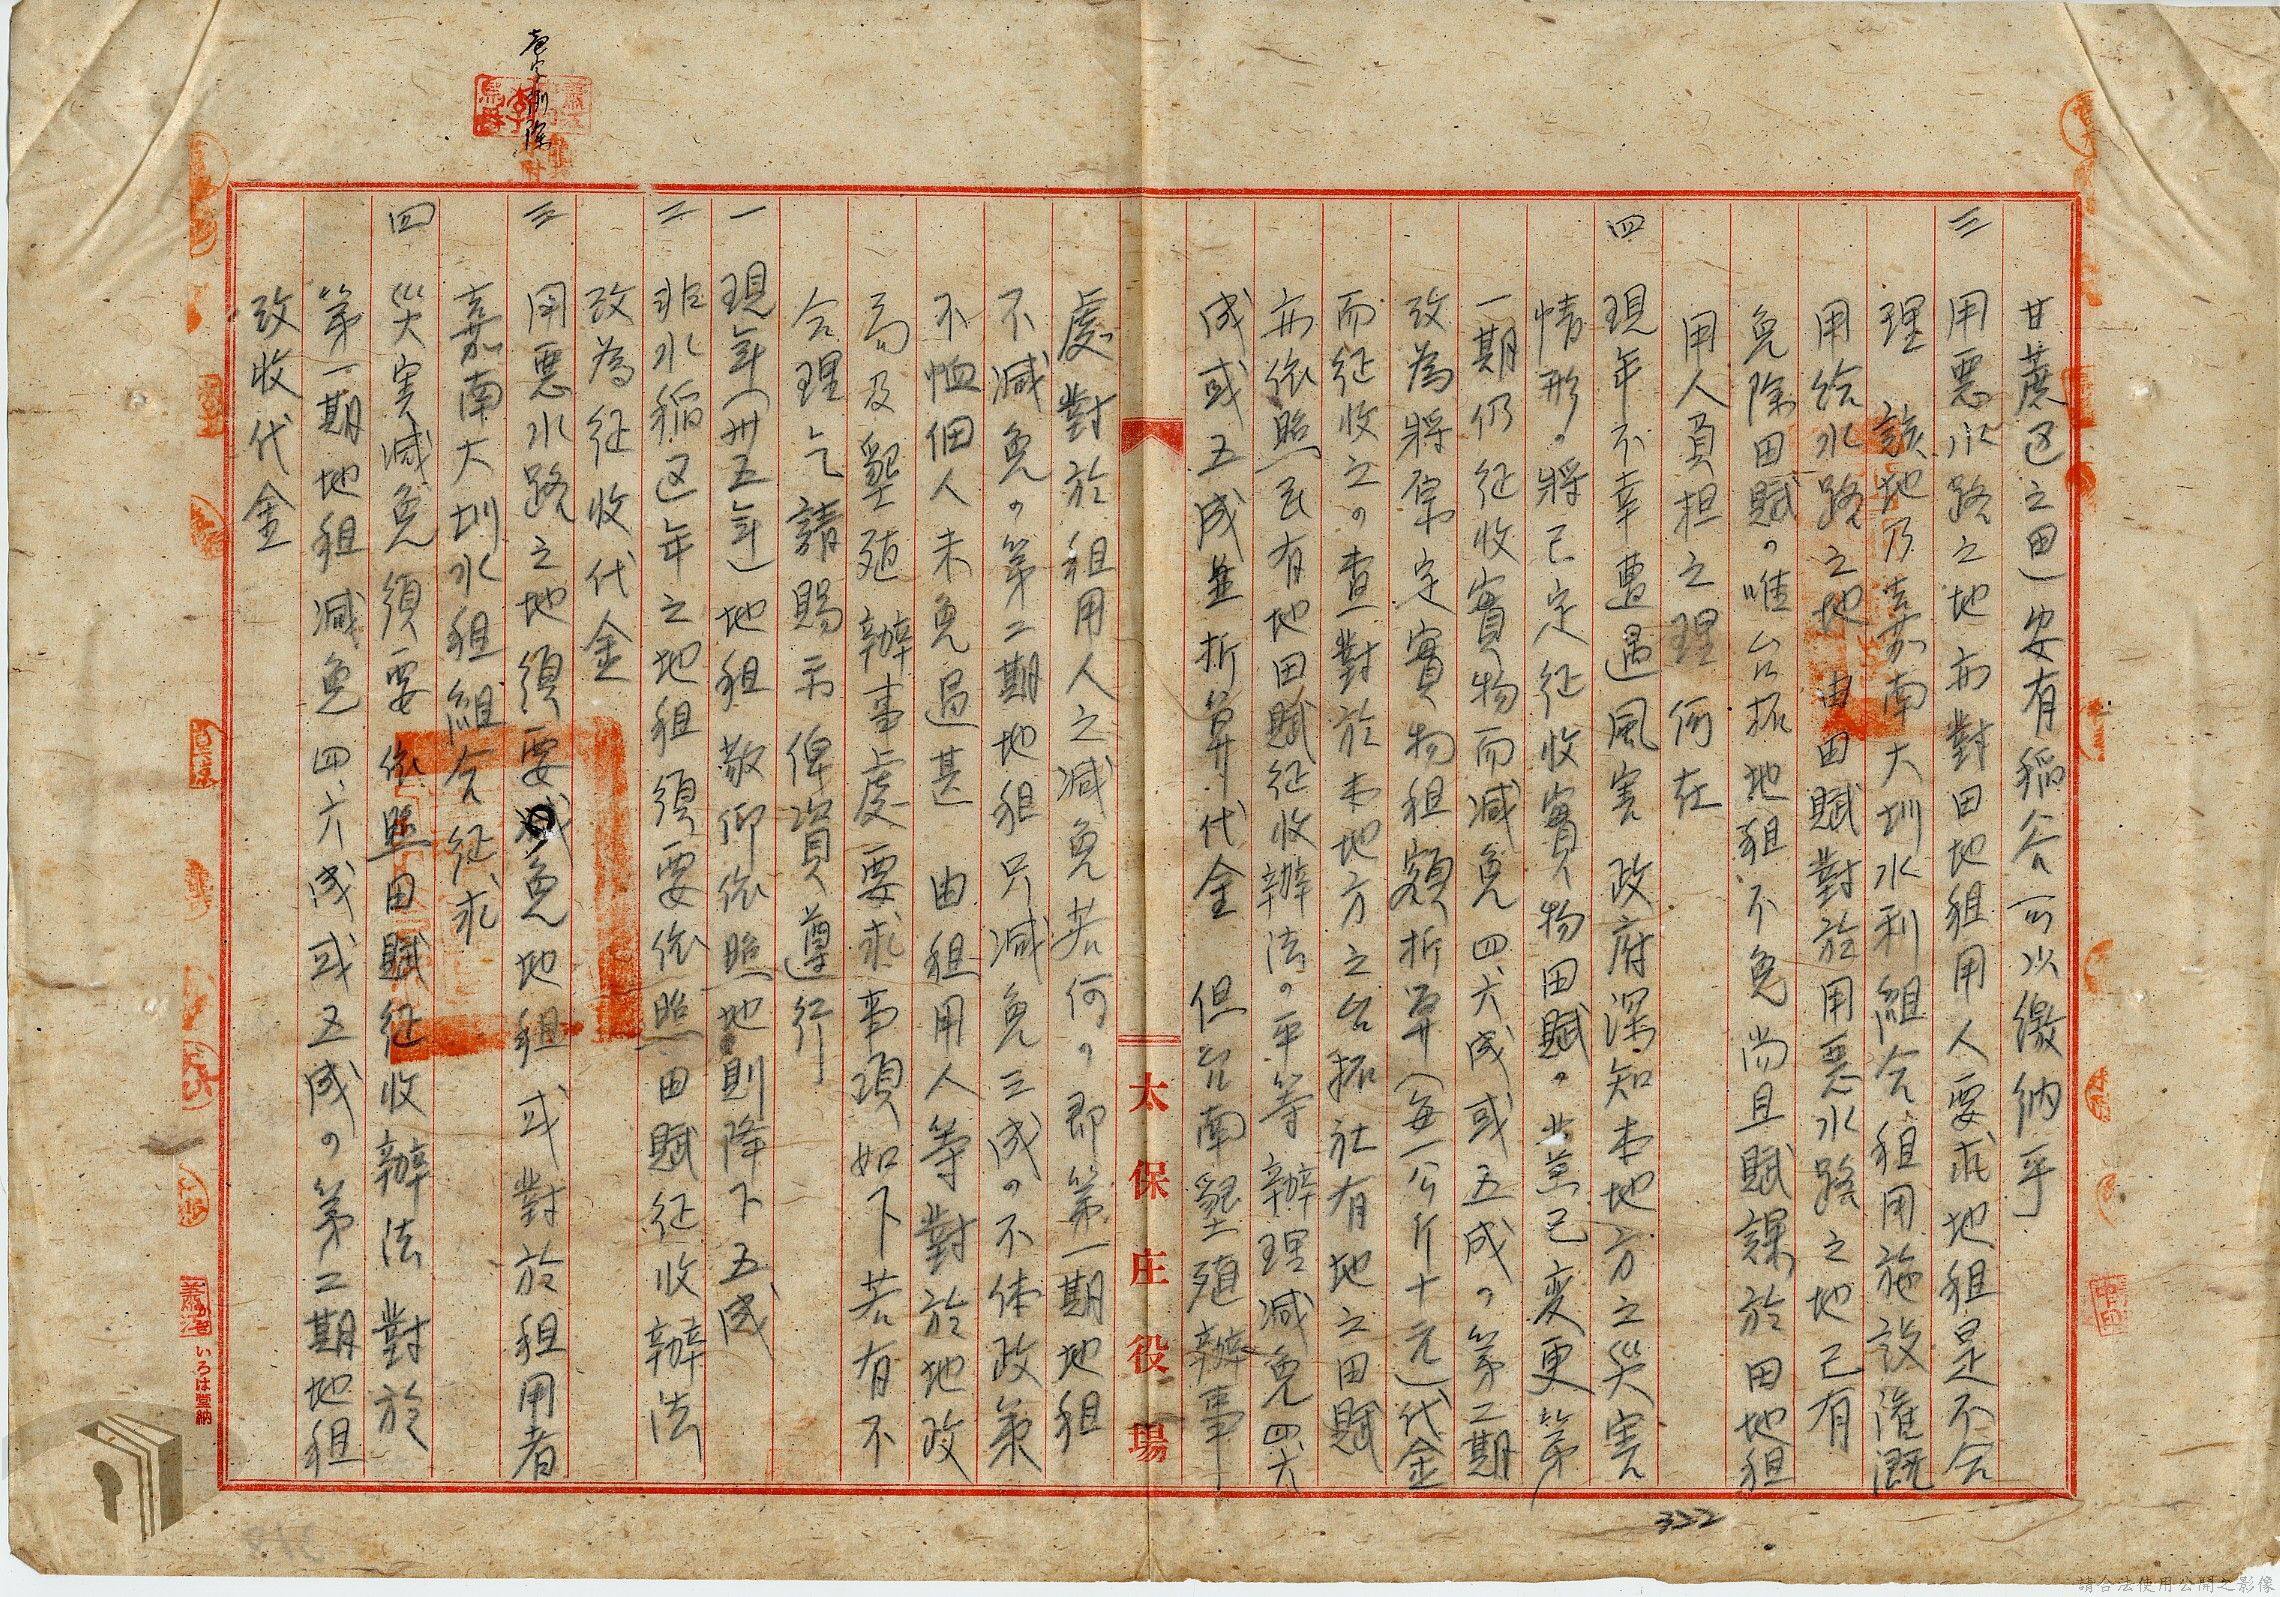 甘蔗区之田)安有稲谷可以繳納乎
三 用悪水路之地亦對田地租用人要求地租是不合
理 該地乃嘉南大圳水利組合租用施設灌漑
用給水路之地 由田賦對於用悪水路之地已有
免除田賦。唯台拓地租不免尚且賦課於田地租
用人負担之理何在
四 現年不幸遭遇風害 政府深知本地方之災害
情形。將已定征收實物田賦。業已変更第
一期仍征收實物而減免四六成或五成。第二期
改為將原定實物租額折算(每一公斤十元)代金
而征收之。査對於本地方之台拓社有地之田賦
亦依照民有地田賦征收辦法。平等辦理減免四六
成或五成並折算代金 但台南墾殖辦事
處對於租用人之減免若何。即第一期地租
不減免。第二期地租只減免三成。不体政策
不恤佃人未免過甚 由租用人等對於地政
局及墾殖辦事處要求事項如下若有不
合理乞請賜示俾資遵行
一 現年(卅五年)地租敬仰依照地則降下五成
二 非水稲区年之地租須要依照田賦征收辦法
改為征收代金
三 用悪水路之地須要免地租或對於租用者
嘉南大圳水租組合征求
四 災害減免須要依照田賦征收辦法對於
第一期地租減免四六成或五成。第二期地租
改收代金
壱字削除
太保庄役場
いろは堂納
322
請合法使用公開之影像